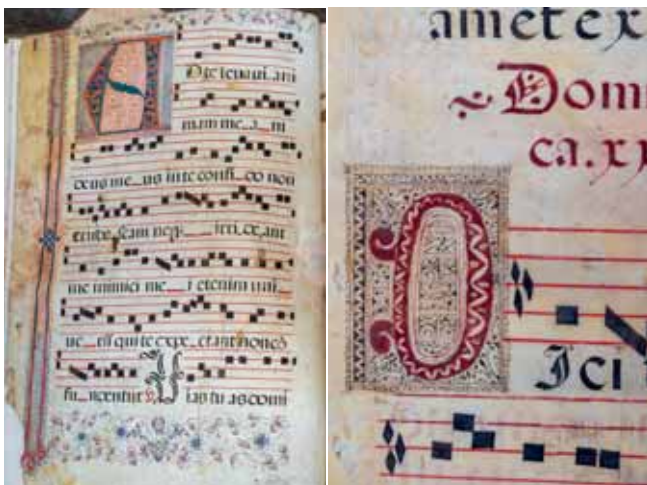 AD te levavi. ani
mam me_a_
us in te confi_do non
irri_de_ant
me inimici me_i etenim uni_
ve_rsi qui te expe_ctant non cō
fu_ndentur V ias tuas domi
amet ex
Dom
ca.xx
DIci